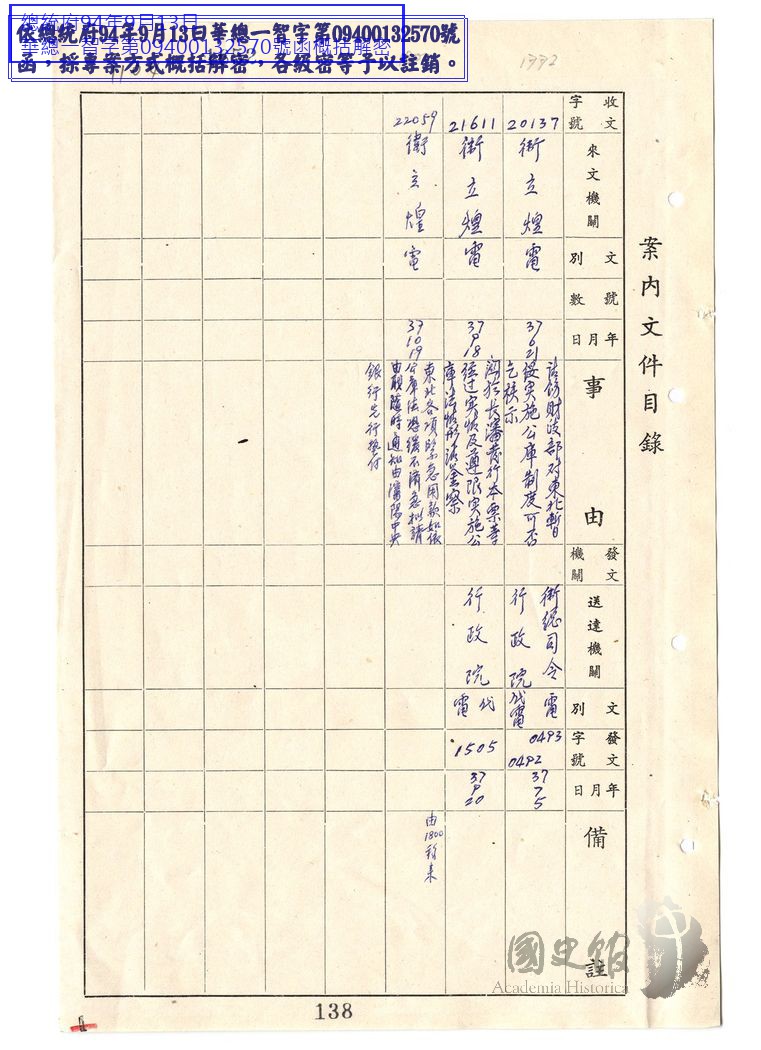 總統府94年9月13日
華總一智字第09400132570號函概括解密
依總統府94年9月13日華總一智字第09400132570號
函,採專案方式概括解密,各級密等予以註銷。
1332
案內文件目錄
收文字號
來文機關
文別
號數
年月日
事由
發文機關
送達機關
文別
發文字號
年月日
備註
20137
衛立煌
電
37 6 21
請飭財政部對東北暫
緩實施公庫制度可否
乞核示
衛總司令 電 0493
行政院 代電 0492
37 7 5
21611
衛立煌
電
37 9 18
關於長瀋發行本票等
經過實情及遵限實施公
庫法情形請鑒察
行政院
代電
1505
37 9 20
22059
衛立煌
電
37 10 19
東北各項緊急用款如依
公庫法恐緩不濟急擬請
由顧隨時通知由瀋陽中央
銀行先行墊付
由1800移來
國史館
Academia Historica
138